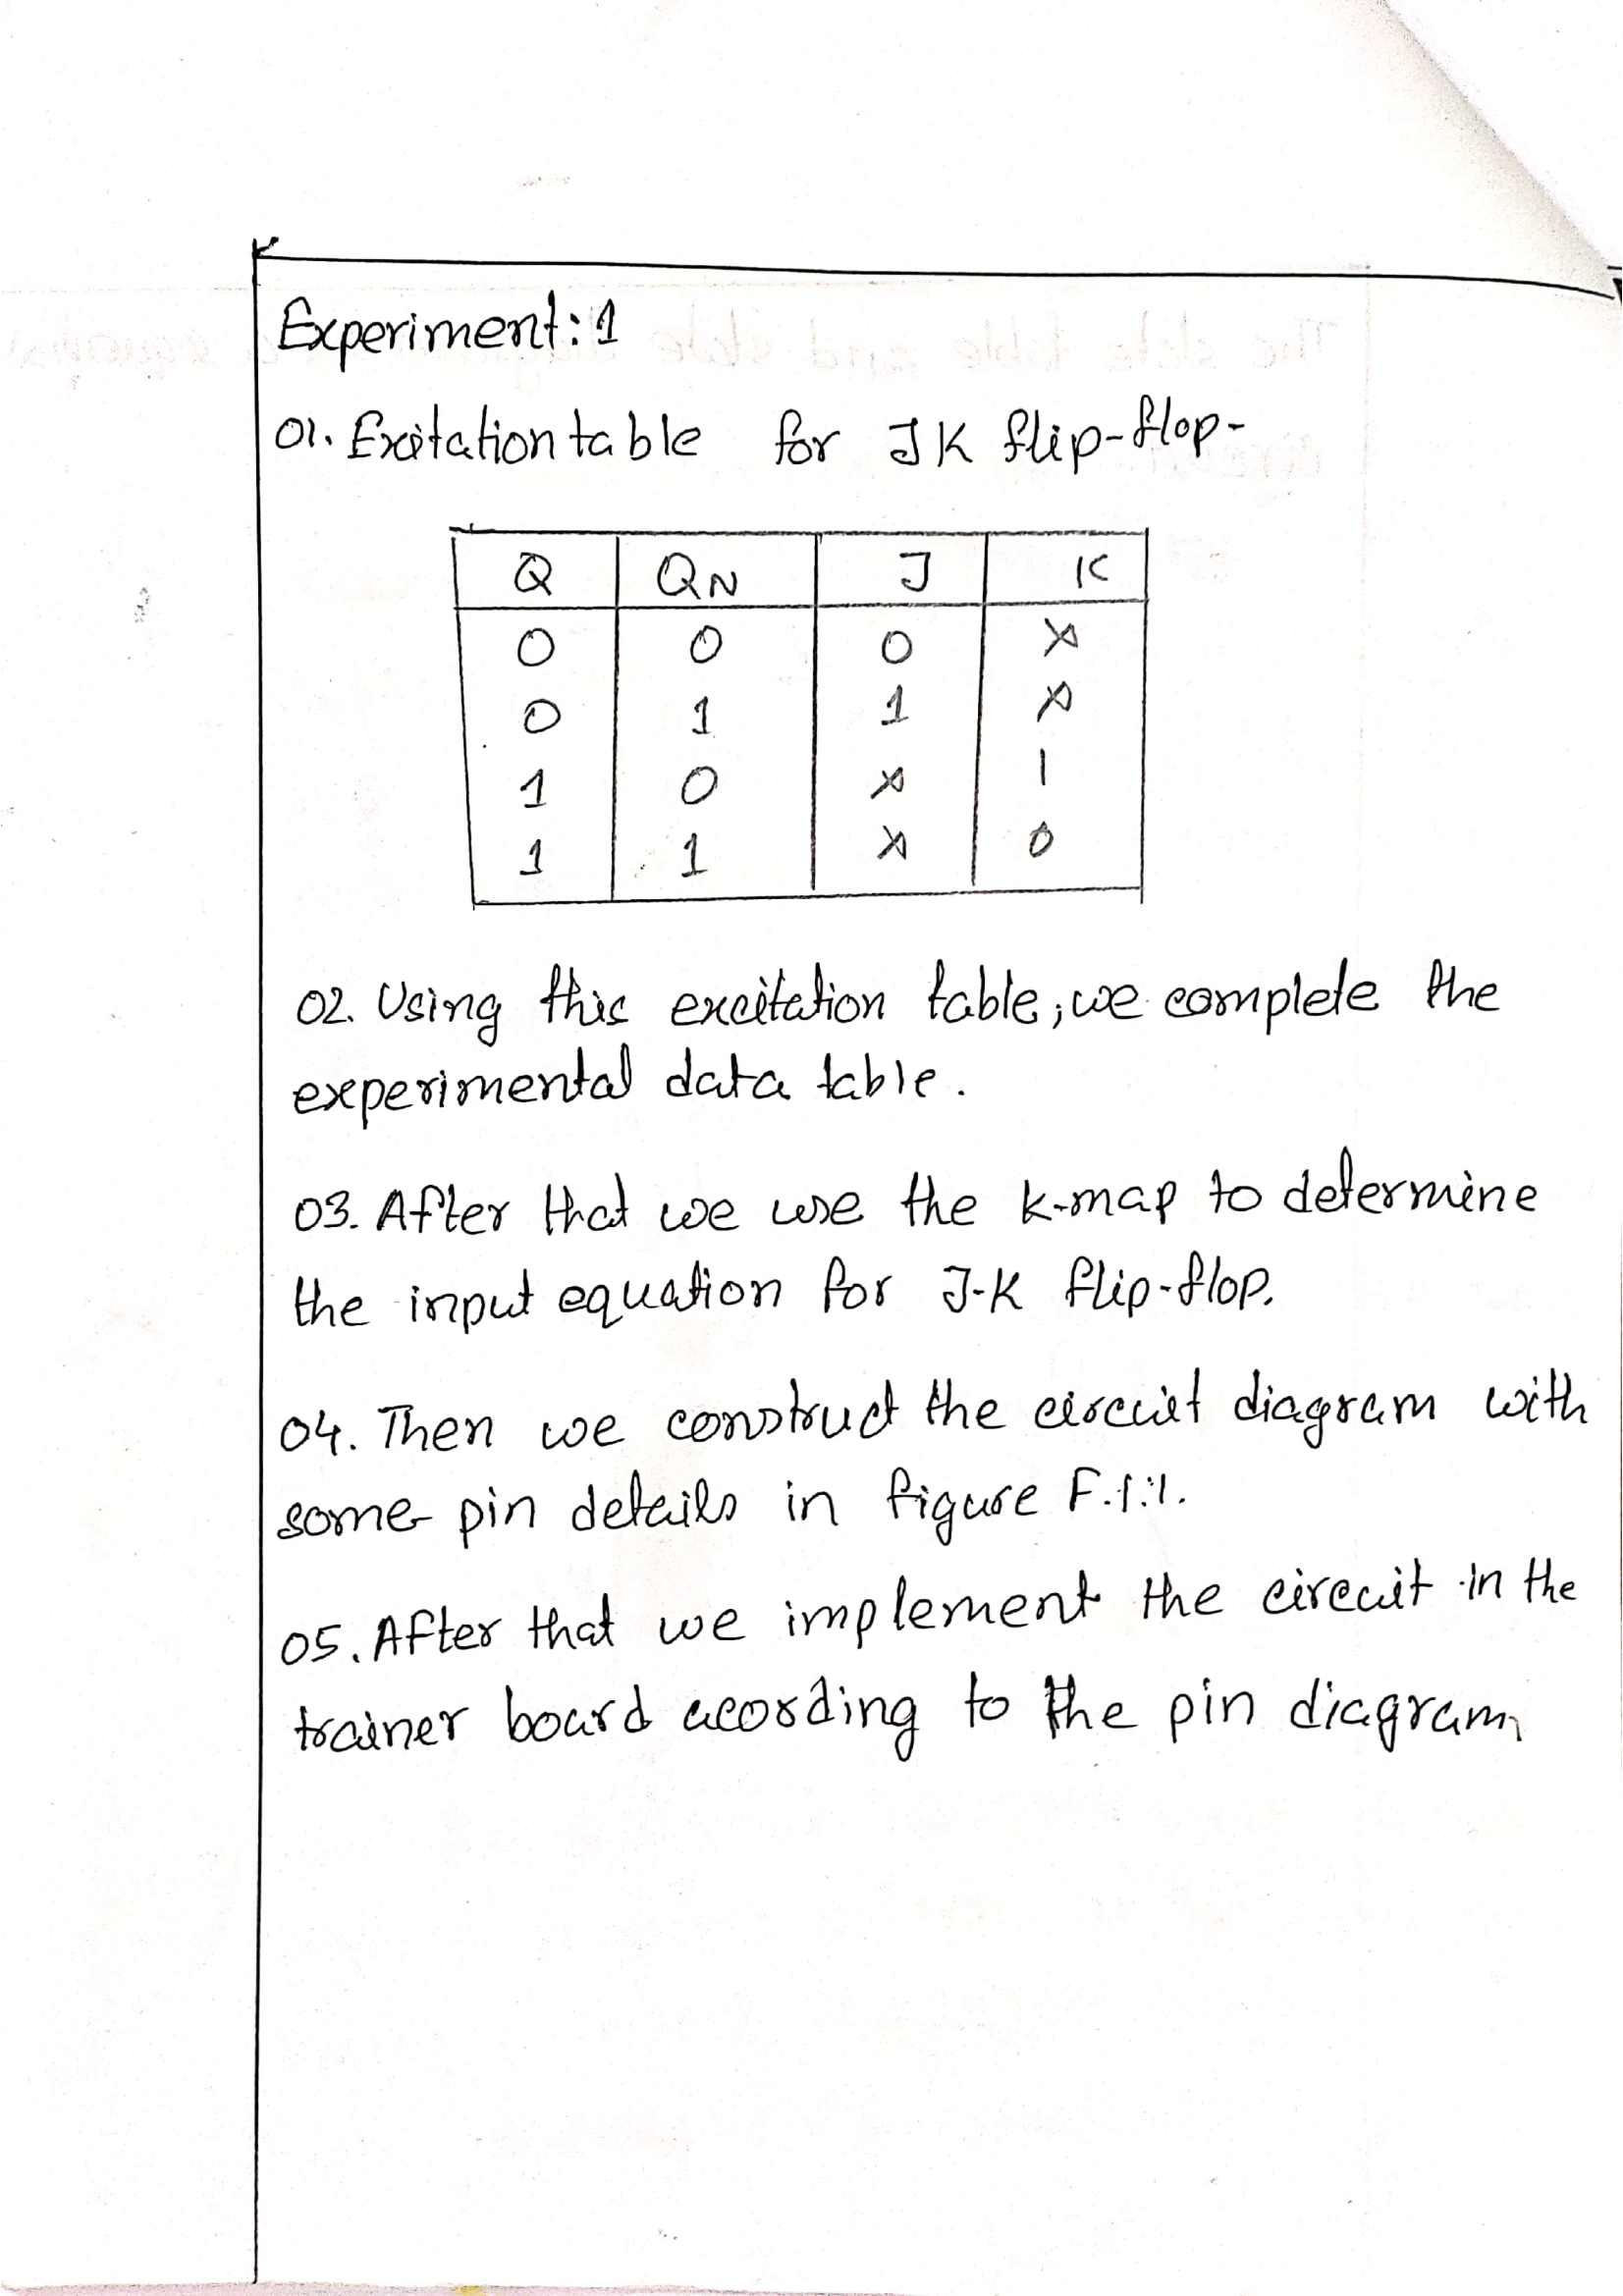 Experiment: 1
01. Exitation table for JK flip-flop-
Q QN J K
0 0 0 x
0 1 1 x
1 0 x 1
1 1 x 0
02. Using this excitation table; we complete the
experimental data table.
03. After that we use the k-map to determine
the input equation for J-K flip-flop.
04. Then we construct the circuit diagram with
some pin details in figure F.1.1.
05. After that we implement the circuit in the
trainer board acording to the pin diagram